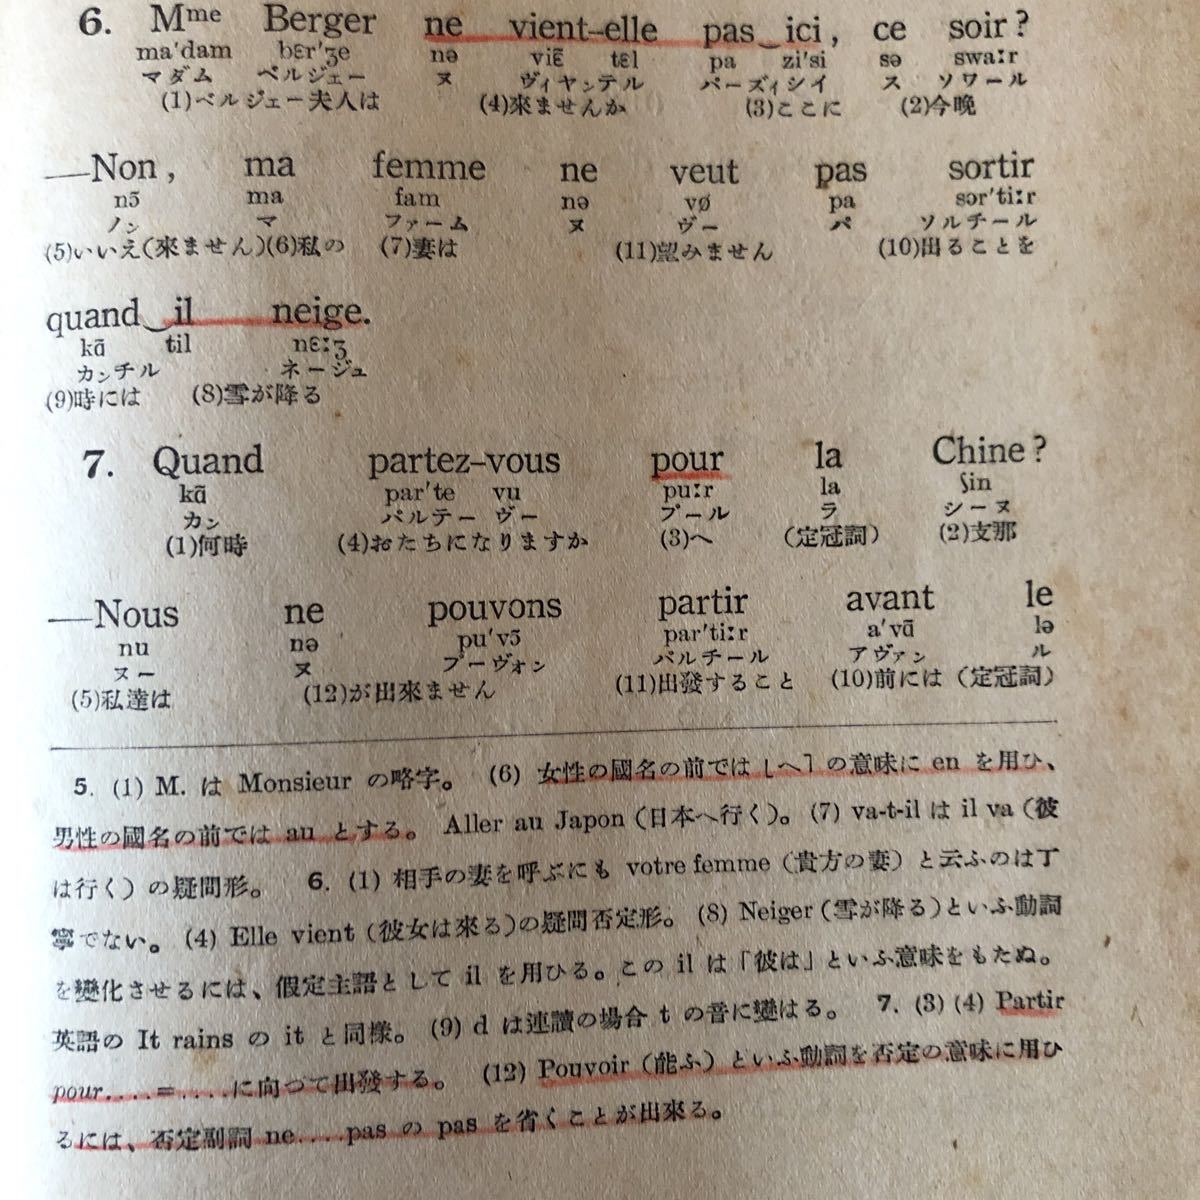 6. Mme Berger ne vient-elle pas‿ici, ce soir?
ma'dam bɛr'ʒe nə viɛ̃ tɛl pa zi'si sə swaːr
マダム ベルジェー ヌ ヴィヤンテル パーズィシイ ス ソワール
(1)ベルジェー夫人は (4)來ませんか (3)ここに (2)今晩
—Non, ma femme ne veut pas sortir
nɔ̃ ma fam nə vø pa sɔr'tiːr
ノン マ ファーム ヌ ヴー パ ソルチール
(5)いいえ(來ません)(6)私の (7)妻は (11)望みません (10)出ることを
quand‿il neige.
kɑ̃ til nɛːʒ
カンチル ネージュ
(9)時には (8)雪が降る
7. Quand partez-vous pour la Chine?
kɑ̃ par'te vu puːr la ʃin
カン パルテー ヴー プール ラ シーヌ
(1)何時 (4)おたちになりますか (3)へ (定冠詞) (2)支那
—Nous ne pouvons partir avant le
nu nə pu'vɔ̃ par'tiːr a'vɑ̃ lə
ヌー ヌ プーヴォン パルチール アヴァン ル
(5)私達は (12)が出來ません (11)出發すること (10)前には (定冠詞)
5. (1) M. は Monsieur の略字。 (6) 女性の國名の前では「へ」の意味に en を用ひ、
男性の國名の前では au とする。 Aller au Japon (日本へ行く)。 (7) va-t-il は il va (彼
は行く) の疑問形。 6. (1) 相手の妻を呼ぶにも votre femme (貴方の妻) と云ふのは丁
寧でない。 (4) Elle vient (彼女は來る)の疑問否定形。 (8) Neiger (雪が降る)といふ動詞
を變化させるには、假定主語として il を用ひる。この il は「彼は」といふ意味をもたぬ。
英語の It rains の it と同樣。 (9) d は連讀の場合 t の音に變はる。 7. (3) (4) Partir
pour....=....に向つて出發する。 (12) Pouvoir (能ふ) といふ動詞を否定の意味に用ひ
るには、否定副詞 ne....pas の pas を省くことが出來る。